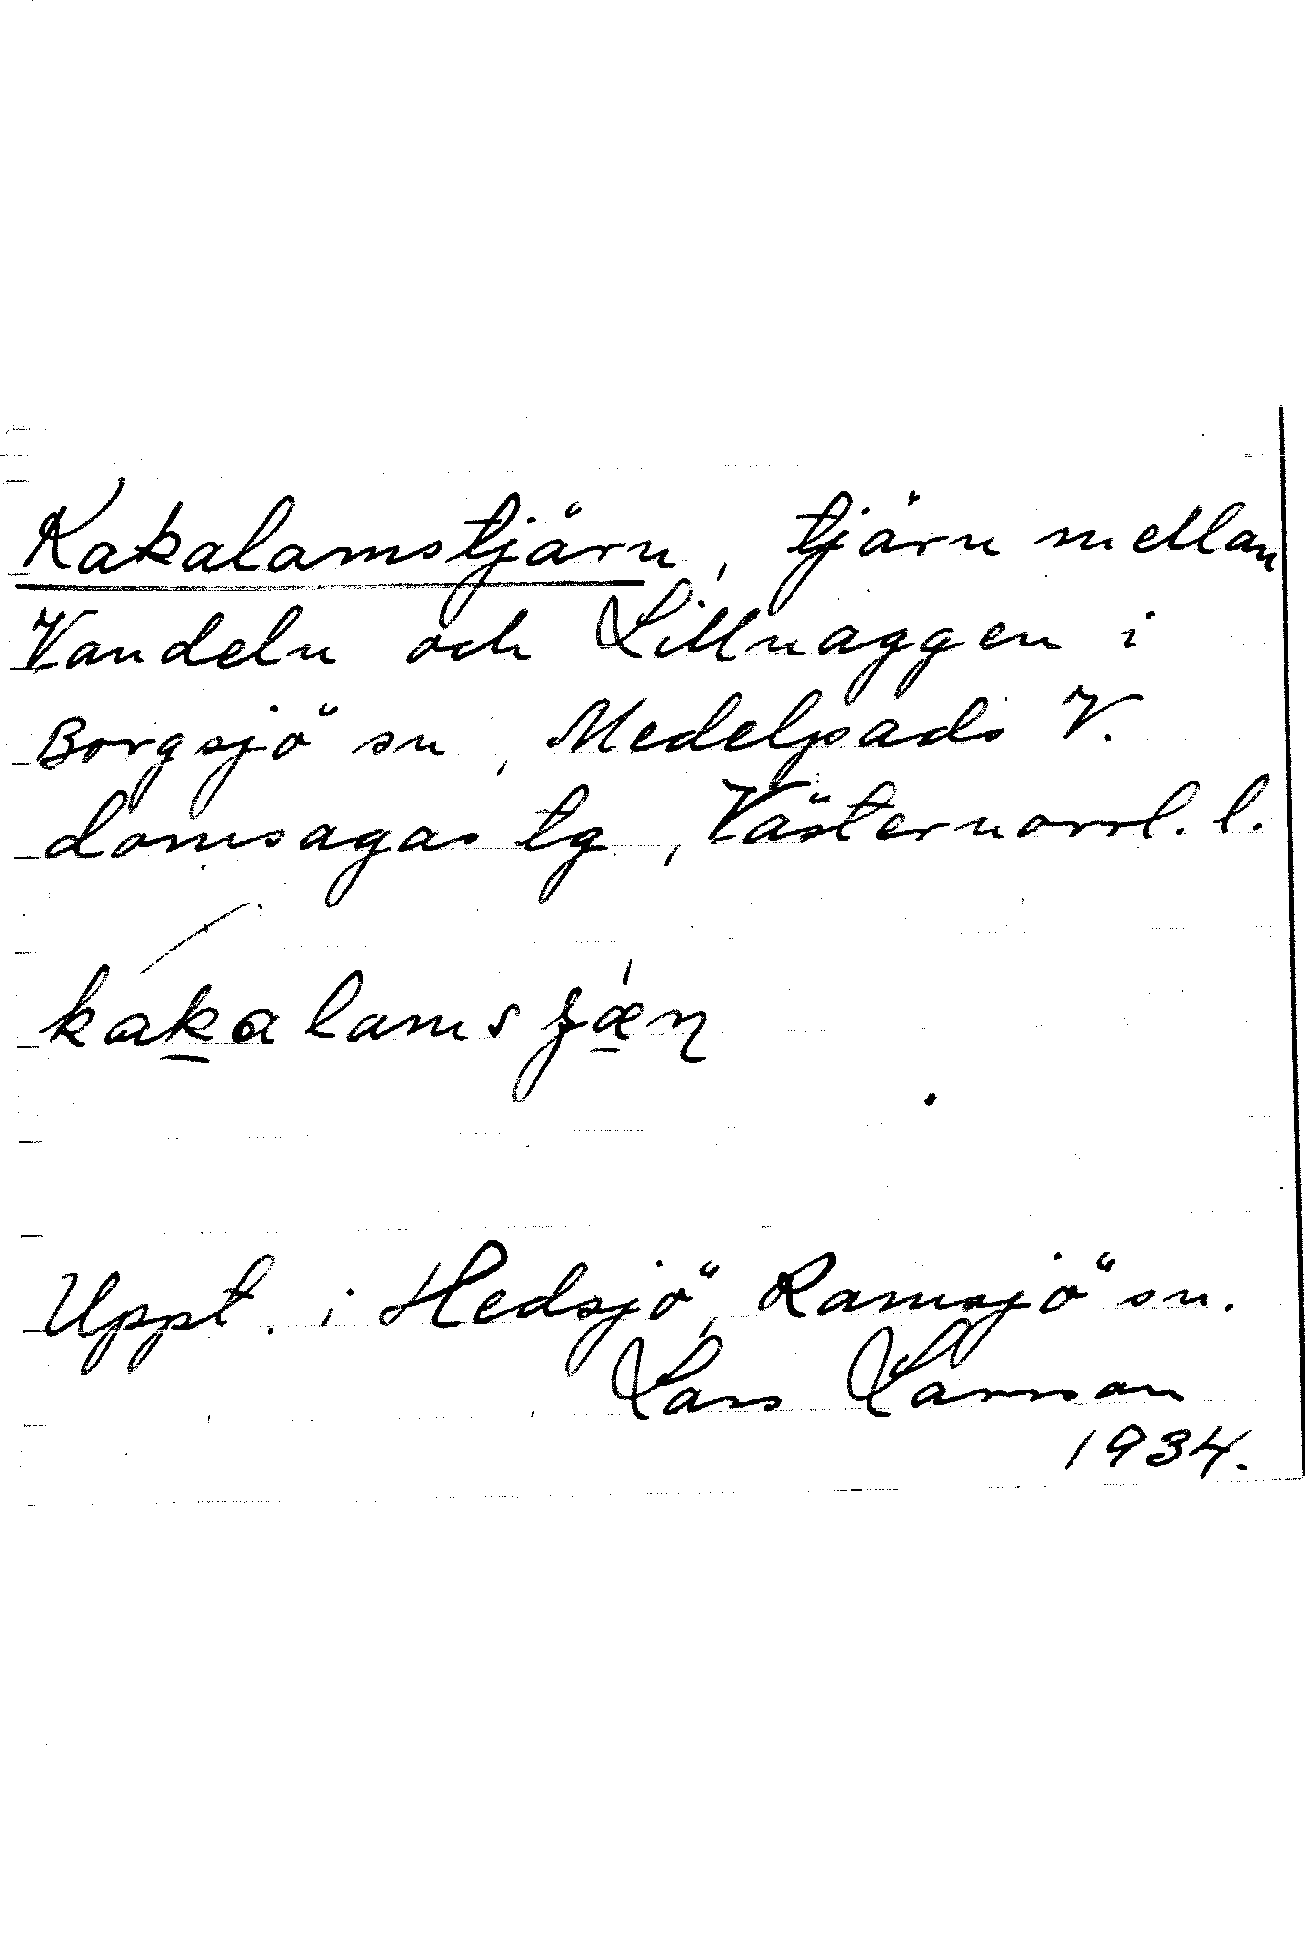 Kakalamstjärn, tjärn mellan
Vandeln och Lillnaggen i
Borgsjö sn, Medelpads V.
domsagas tg, Västernorrl. l.
Uppt. i Hedsjö, Ramsjö sn.
Lars Larsson
1934.